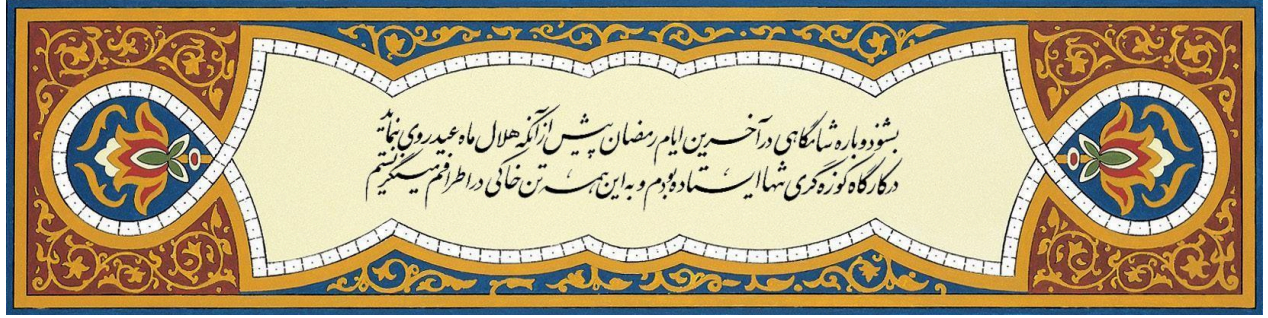 بشنو دوباره شامگاهی در آخرین ایام رمضان پیش از آنکه هلال ماه عید روی بنماید
در کارگاه کوزه گری تنها ایستاده بودم و به این همه تن خاکی در اطرافم مینگریستم